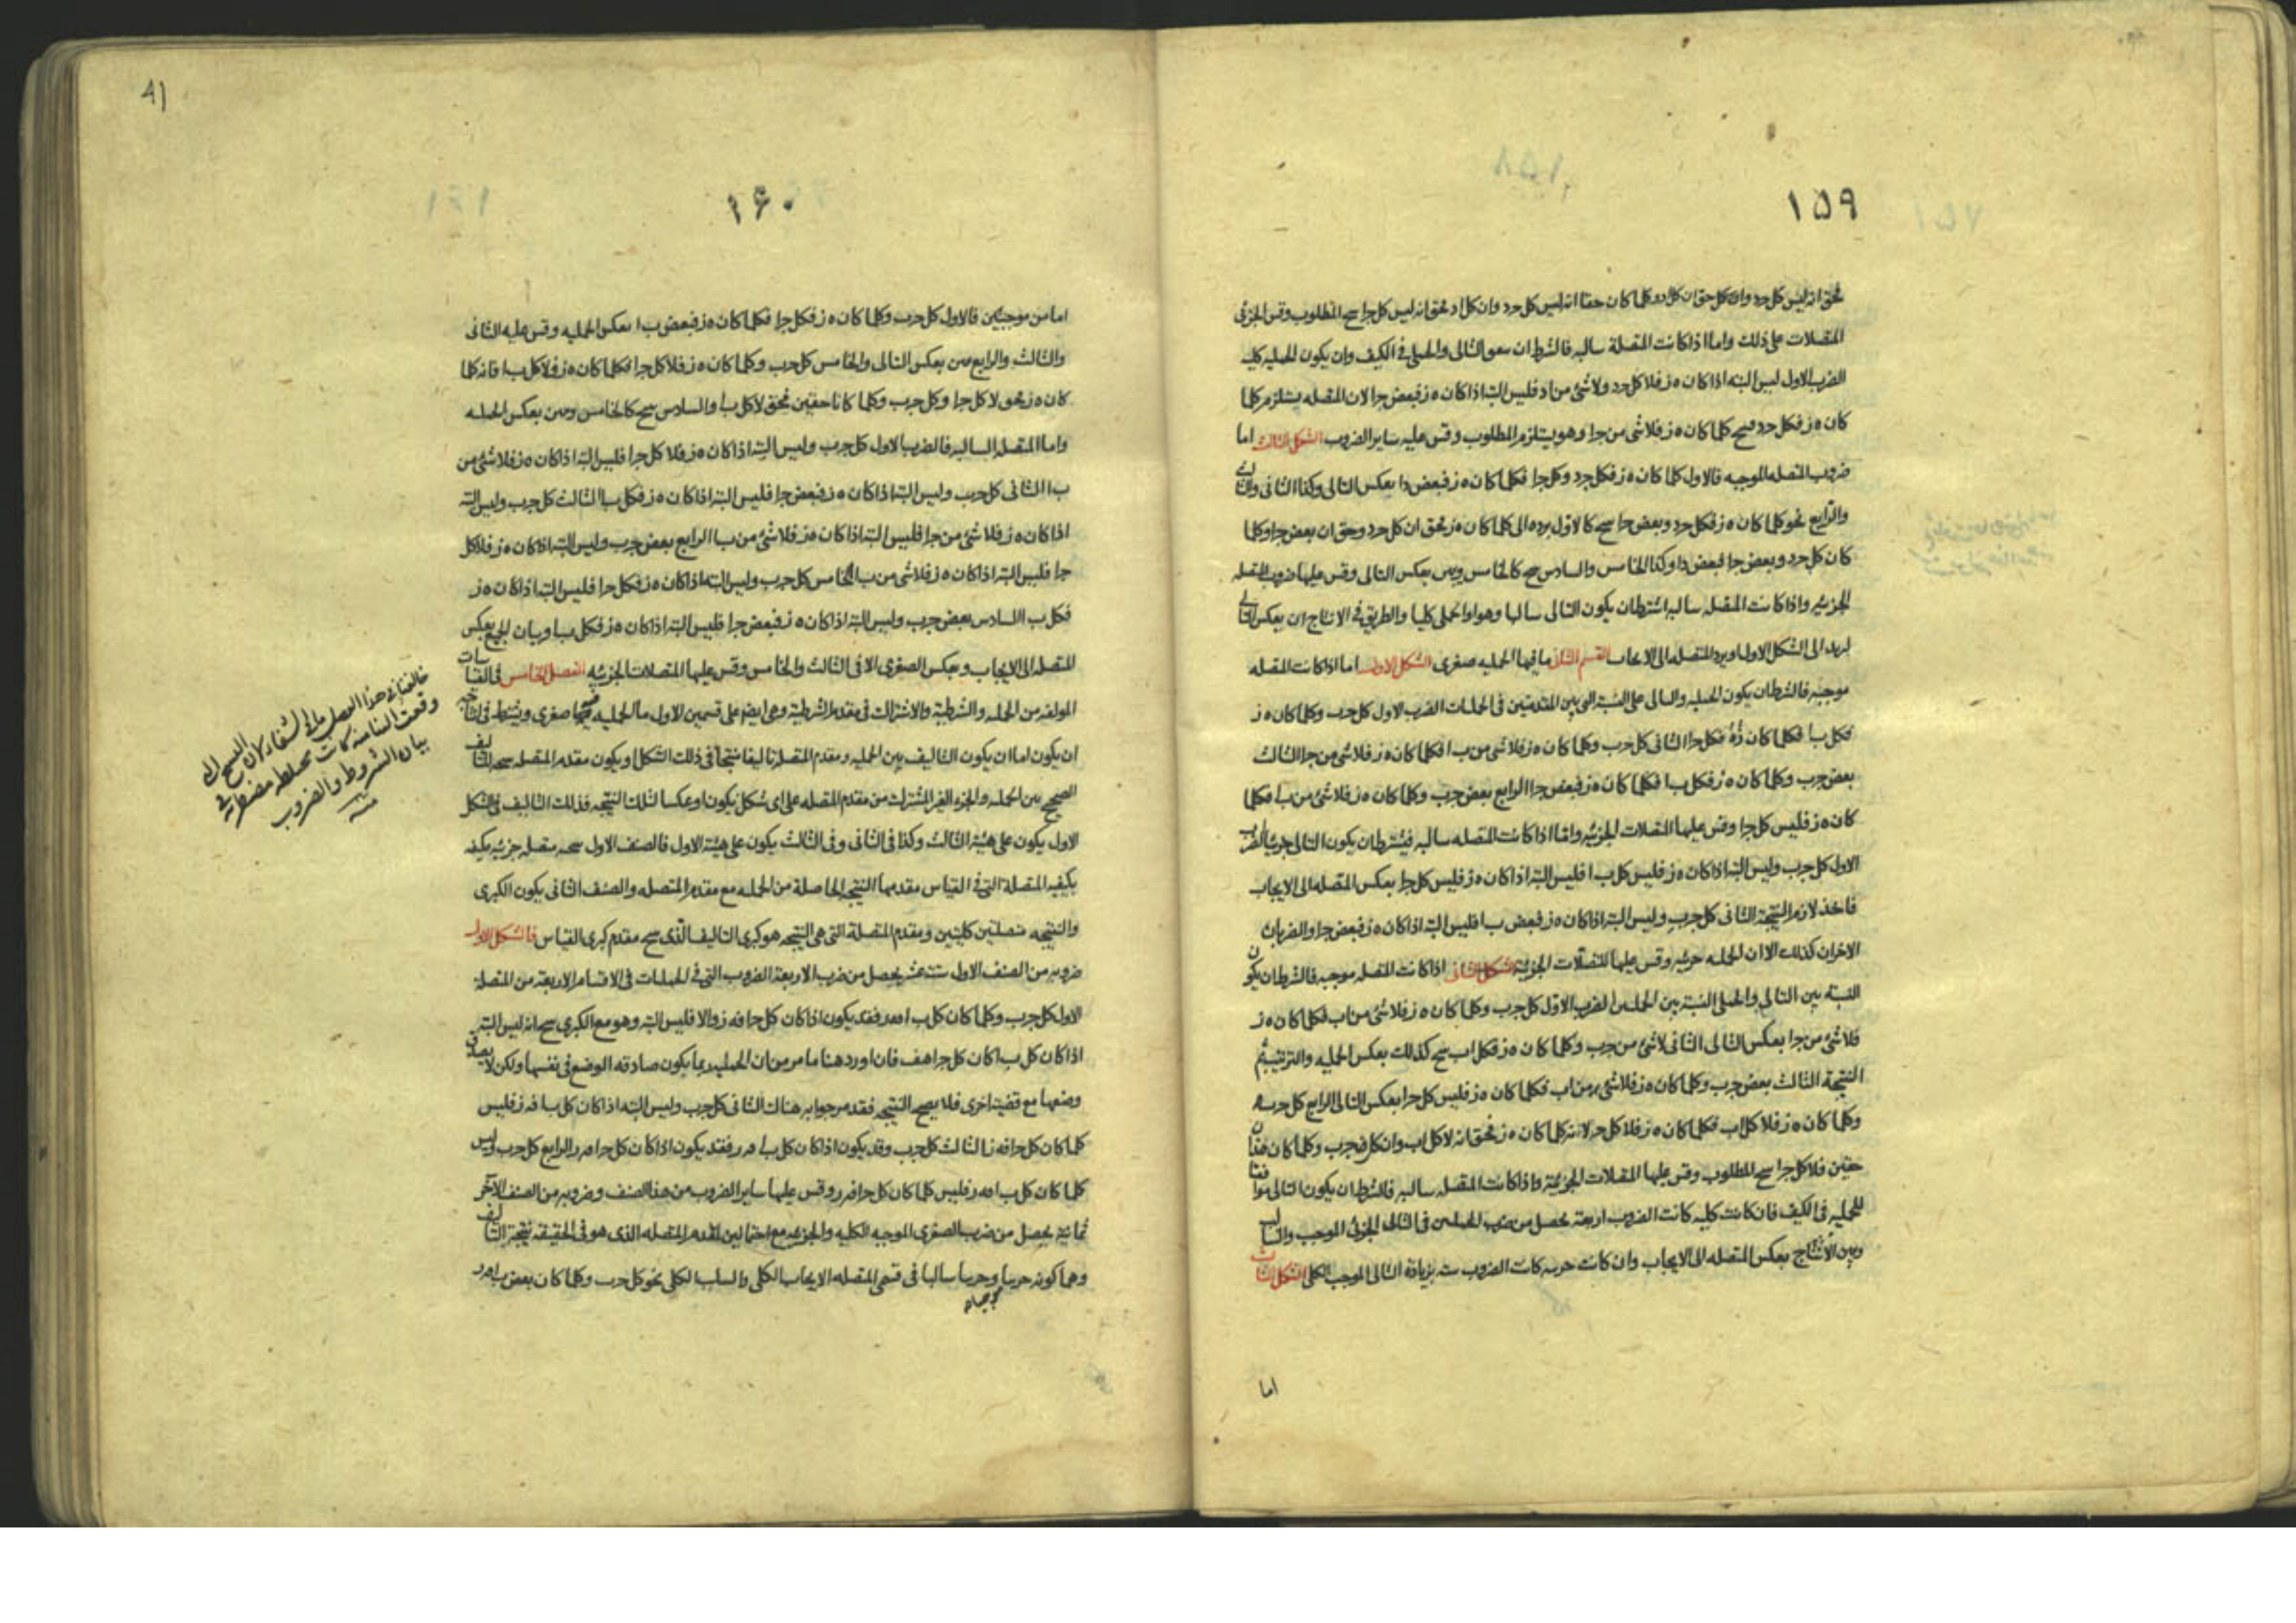 ١٥٩
تحقق انه ليس كل جد وان كل حق ان كل اد وكلما كان حقا انه ليس كل جد وان كل اد تحقق انه ليس كل جا سح المطلوب وقس الجزئى
المتصلات على ذلك واما اذا كانت المتصلة سالبه فالشرط ان التالى والحملى فى الكيف وان يكون الحمليه كليه
الضرب الاول ليس البته اذا كان ه ز فلا كل جد ولا شئ من اد فليس البته اذا كان ه ز فبعض جا لان المتصله يستلزم كلما
كان ه ز فكل جد سح كلما كان ه ز فلا شئ من جا وهو يستلزم المطلوب وقس عليه ساير الضروب الشكل الثالث اما
ضروب المتصله الموجبه فالاول كلما كان ه ز فكل جد وكل جا فكلما كان ه ز فبعض دا بعكس التالى وكذا الثانى والثالث
والرابع نحو كلما كان ه ز فكل جد وبعض جا سح كالاول برده الى كلما كان ه ز تحقق ان كل جد وحق ان بعض جا وكلما
كان كل جد وبعض جا فبعض دا وكذا الخامس والسادس سح كالخامس وبين بعكس التالى وقس عليها ضروب المتصله
الجزئيه واذا كانت المتصله سالبه اشترط ان يكون التالى سالبا وهو او الحملى كليا والطريق فى الانتاج ان يعكس التالى
ليرتد الى الشكل الاول او يرد المتصله الى الايجاب القسم الثانى ما فيها الحمليه صغرى الشكل الاول اما اذا كانت المتصله
موجبه فالشرط ان يكون الحمليه والتالى على النسبة التى بين المقدمتين فى الحمليات الضرب الاول كل جب وكلما كان ه ز
فكل با فكلما كان ه ز فكل جا الثانى كل جب وكلما كان ه ز فلا شئ من ب ا فكلما كان ه ز فلا شئ من جا الثالث
بعض جب وكلما كان ه ز فكل ب ا فكلما كان ه ز فبعض جا الرابع بعض جب وكلما كان ه ز فلا شئ من ب ا فكلما
كان ه ز فليس كل جا وقس عليها المتصلات الجزئيه واما اذا كانت المتصله سالبه فيشترط ان يكون التالى جزئيا الضرب
الاول كل جب وليس البته اذا كان ه ز فليس كل ب ا فليس البته اذا كان ه ز فليس كل جا بعكس المتصله الى الايجاب
فاخذ لازم النتيجة الثانى كل جب وليس البته اذا كان ه ز فبعض ب ا فليس البته اذا كان ه ز فبعض جا والضربان
الاخران كذلك الا ان الحمليه جزئيه وقس عليها المتصلات الجزئية الشكل الثانى اذا كانت المتصله موجبه فالشرط ان يكون
النسبة بين التالى والحملى النسبة بين الحمليتين الضرب الاول كل جب وكلما كان ه ز فلا شئ من اب فكلما كان ه ز
فلا شئ من جا بعكس التالى الثانى لا شئ من جب وكلما كان ه ز فكل اب سح كذلك بعكس الحمليه والترتيب ثم
النتيجة الثالث بعض جب وكلما كان ه ز فلا شئ من اب فكلما كان ه ز فليس كل جا بعكس التالى الرابع كل جب
وكلما كان ه ز فلا كل اب فكلما كان ه ز فلا كل جا لانه كلما كان ه ز تحقق انه لا كل اب وان كل جب وكلما كان هذان
حقين فلا كل جا سح المطلوب وقس عليها المتصلات الجزئية واذا كانت المتصله سالبه فالشرط ان يكون التالى موافقا
للحمليه فى الكيف فان كانت كليه كانت الضروب اربعة يحصل من ضرب الحمليتين فى التالى الجزئى الموجب والسالب
وبين الانتاج بعكس المتصله الى الايجاب وان كانت جزئيه كانت الضروب سته بزيادة التالى الموجب الكلى الشكل الثالث
اما
١۶٠
اما من موجبتين فالاول كل جب وكلما كان ه ز فكل جا فكلما كان ه ز فبعض ب ا بعكس الحمليه وقس عليه الثانى
والثالث والرابع بين بعكس التالى والخامس كل جب وكلما كان ه ز فلا كل جا فكلما كان ه ز فلا كل ب ا فانه كلما
كان ه ز تحقق لا كل جا وكل جب وكلما كانا حقين تحقق لا كل با والسادس سح كالخامس وبين بعكس الحمليه
واما المتصله السالبه فالضرب الاول كل جب وليس البته اذا كان ه ز فلا كل جا فليس البته اذا كان ه ز فلا شئ من
ب ا الثانى كل جب وليس البته اذا كان ه ز فبعض جا فليس البته اذا كان ه ز فكل ب ا الثالث كل جب وليس البته
اذا كان ه ز فلا شئ من جا فليس البته اذا كان ه ز فلا شئ من ب ا الرابع بعض جب وليس البته اذا كان ه ز فلا كل
جا فليس البته اذا كان ه ز فلا شئ من ب ا الخامس كل جب وليس البته اذا كان ه ز فكل جا فليس البته اذا كان ه ز
فكل ب ا السادس بعض جب وليس البته اذا كان ه ز فبعض جا فليس البته اذا كان ه ز فكل ب ا وبيان الجميع بعكس
المتصله الى الايجاب وبعكس الصغرى الا فى الثالث والخامس وقس عليها المتصلات الجزئيه الفصل الخامس فى القياسات
المولفه من الحمليه والشرطية والاشتراك فى مقدم الشرطية وهى ايضا على قسمين الاول ما الحمليه فيها صغرى ويشترط فى انتاجه
ان يكون اما ان يكون التاليف بين الحمليه ومقدم المتصله تاليفا منتجا فى ذلك الشكل او يكون مقدم المتصله نتيجه التاليف
الصحيح بين الحمليه والجزء الغير المشترك من مقدم المتصله على اى شكل يكون او عكسا لتلك النتيجه فذلك التاليف فى الشكل
الاول يكون على هيئة الثالث وكذا فى الثانى وفى الثالث يكون على هيئة الاول فالصنف الاول نتيجته متصله جزئيه مكيفه
بكيفيه المتصلة التى فى القياس مقدمها النتيجه الحاصلة من الحمليه مع مقدم المتصله والصنف الثانى يكون الكبرى
والنتيجه متصلتين كليتين ومقدم المتصلة التى هى النتيجه هو كبرى التاليف الذى سح مقدم كبرى القياس فالشكل الاول
ضروبه من الصنف الاول ستة عشر يحصل من ضرب الاربعة الضروب التى فى الحمليات فى الاقسام الاربعة من المتصلة
الاول كل جب وكلما كان كل ب ا فه ز فقد يكون اذا كان كل جا فه ز والا فليس البته وهو مع الكبرى سح انه ليس البته
اذا كان كل ب ا كان كل جا هف فان اورد هنا ما مر من ان الحمليه ربما يكون صادقه الوضع فى نفسها ولكن لا يصدق
وضعها مع قضية اخرى فلا يصح النتيجه فقد مر جوابه هناك الثانى كل جب وليس البته اذا كان كل ب ا فه ز فليس
كلما كان كل جا فه ز الثالث كل جب وقد يكون اذا كان كل ب ا فه ز فقد يكون اذا كان كل جا فه ز الرابع كل جب وليس
كلما كان كل ب ا فه ز فليس كلما كان كل جا فه ز وقس عليها ساير الضروب من هذا الصنف وضروبه من الصنف الآخر
ثمانية يحصل من ضرب الصغرى الموجبه الكليه والجزئيه مع احتمالين لمقدم المتصله الذى هو فى الحقيقه نتيجة التاليف
وهما كونه جزئيا وجزئيا سالبا فى قسمى المتصله الايجاب الكلى والسلب الكلى نحو كل جب وكلما كان بعض ب ا فه ز
موجبا
خالفنا فى هذا الفصل ما فى الشفاء لان النسخ التى
وقعت الينا منه كانت مختلطه مضطربه فى
بيان الشروط والضروب
منه